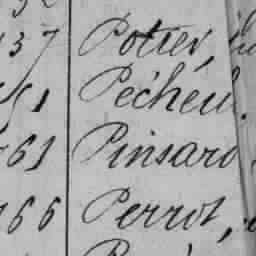 37 Potier,
51 Pécheu
61 Pinsard
166 Perrot,